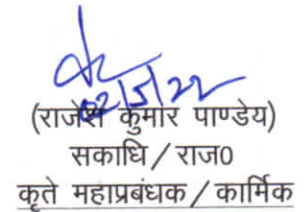 02/5/22
(राजेश कुमार पाण्डेय)
सकाधि / राज0
कृते महाप्रबंधक / कार्मिक